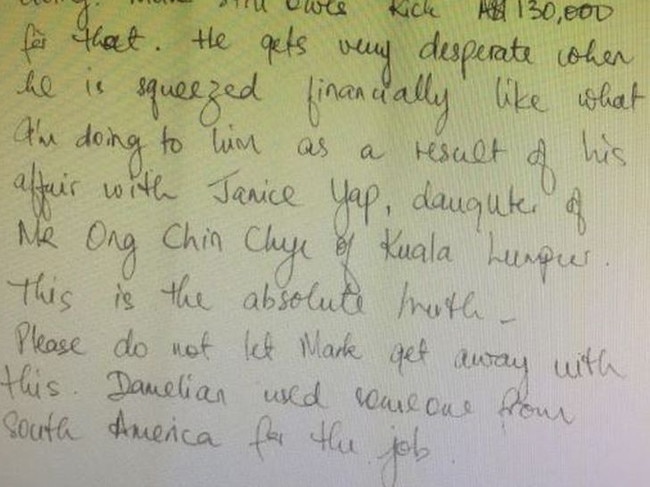 doing. Mark still owes Rick A$ 130,000
for that. He gets very desperate when
he is squeezed financially like what
I'm doing to him as a result of his
affair with Janice Yap, daughter of
Mr Ong Chin Chye of Kuala Lumpur.
This is the absolute truth -
Please do not let Mark get away with
this. Damelian used someone from
South America for the job.